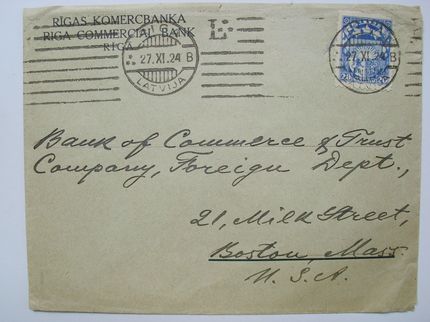 RĪGAS KOMERCBANKA
RIGA COMMERCIAL BANK
RIGA
27.XI.24 B
LATVIJA
27.XI.24 B
Bank of Commerce & Trust
Company, Foreign Dept.,
21, Milk Street,
Boston, Mass.
U.S.A.